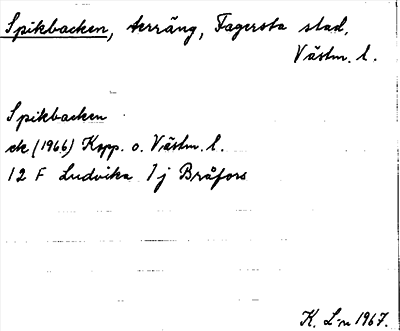 Spikbacken, terräng, Fagersta stad,
Västm. l.
Spikbacken
ek (1966) Kopp. o. Västm. l.
12 F Ludvika 7j Bråfors
K. L-n 1967.